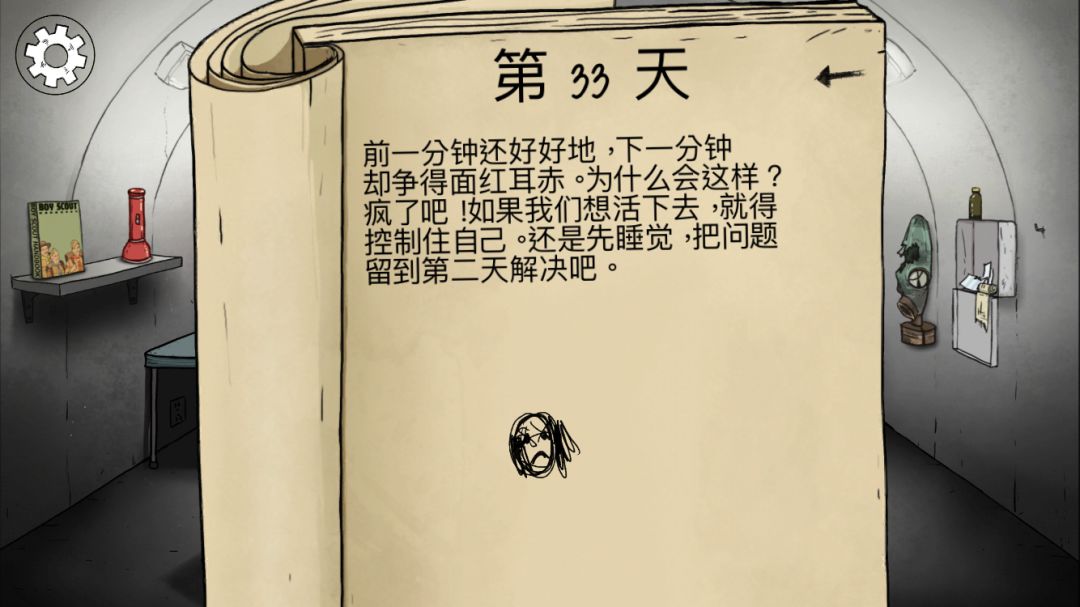 第 33 天
前一分钟还好好地，下一分钟
却争得面红耳赤。为什么会这样？
疯了吧！如果我们想活下去，就得
控制住自己。还是先睡觉，把问题
留到第二天解决吧。
BOY SCOUT
BOY SCOUT HANDBOOK